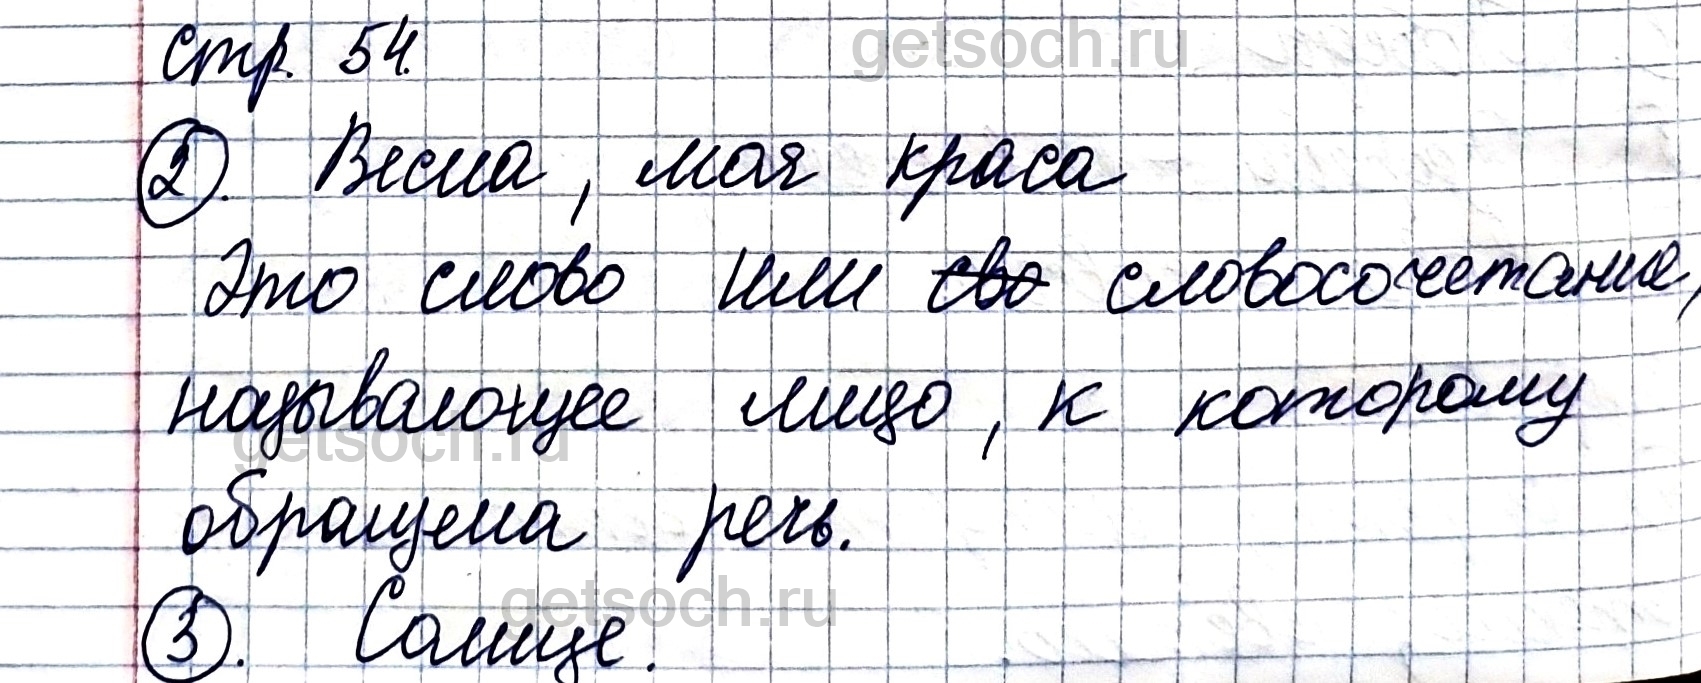 стр. 54.
getsoch.ru
2. Весна, моя краса
Это слово или сво словосочетание,
называющее лицо, к которому
getsoch.ru
обращена речь.
getsoch.ru
3. Солнце.